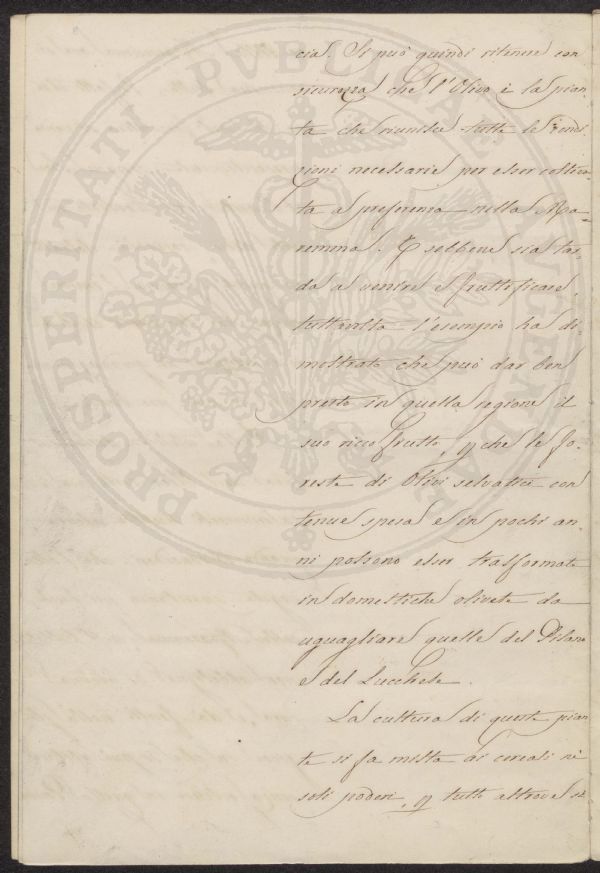 cia. Si può quindi ritenere con
sicurezza che l'Olivo è la pian-
ta che riunisce tutte le condi-
zioni necessarie per esser coltiva-
ta a preferenza nella Ma=
remma. E sebbene sia tar-
da a venire e fruttificare,
tuttavolta l'esempio ha di-
mostrato che può dar ben
presto in quella regione il
suo ricco frutto, e che le fo-
reste di Olivi selvatici con
tenue spesa e in pochi an-
ni possono esser trasformate
in domestiche olivete da
uguagliare quelle del Pisano
e del Lucchese.
La cultura di queste pian
te si fa mista ai cereali nei
soli poderi, e tutti altrove si
PROSPERITATI PUBLICAE AUGENDAE